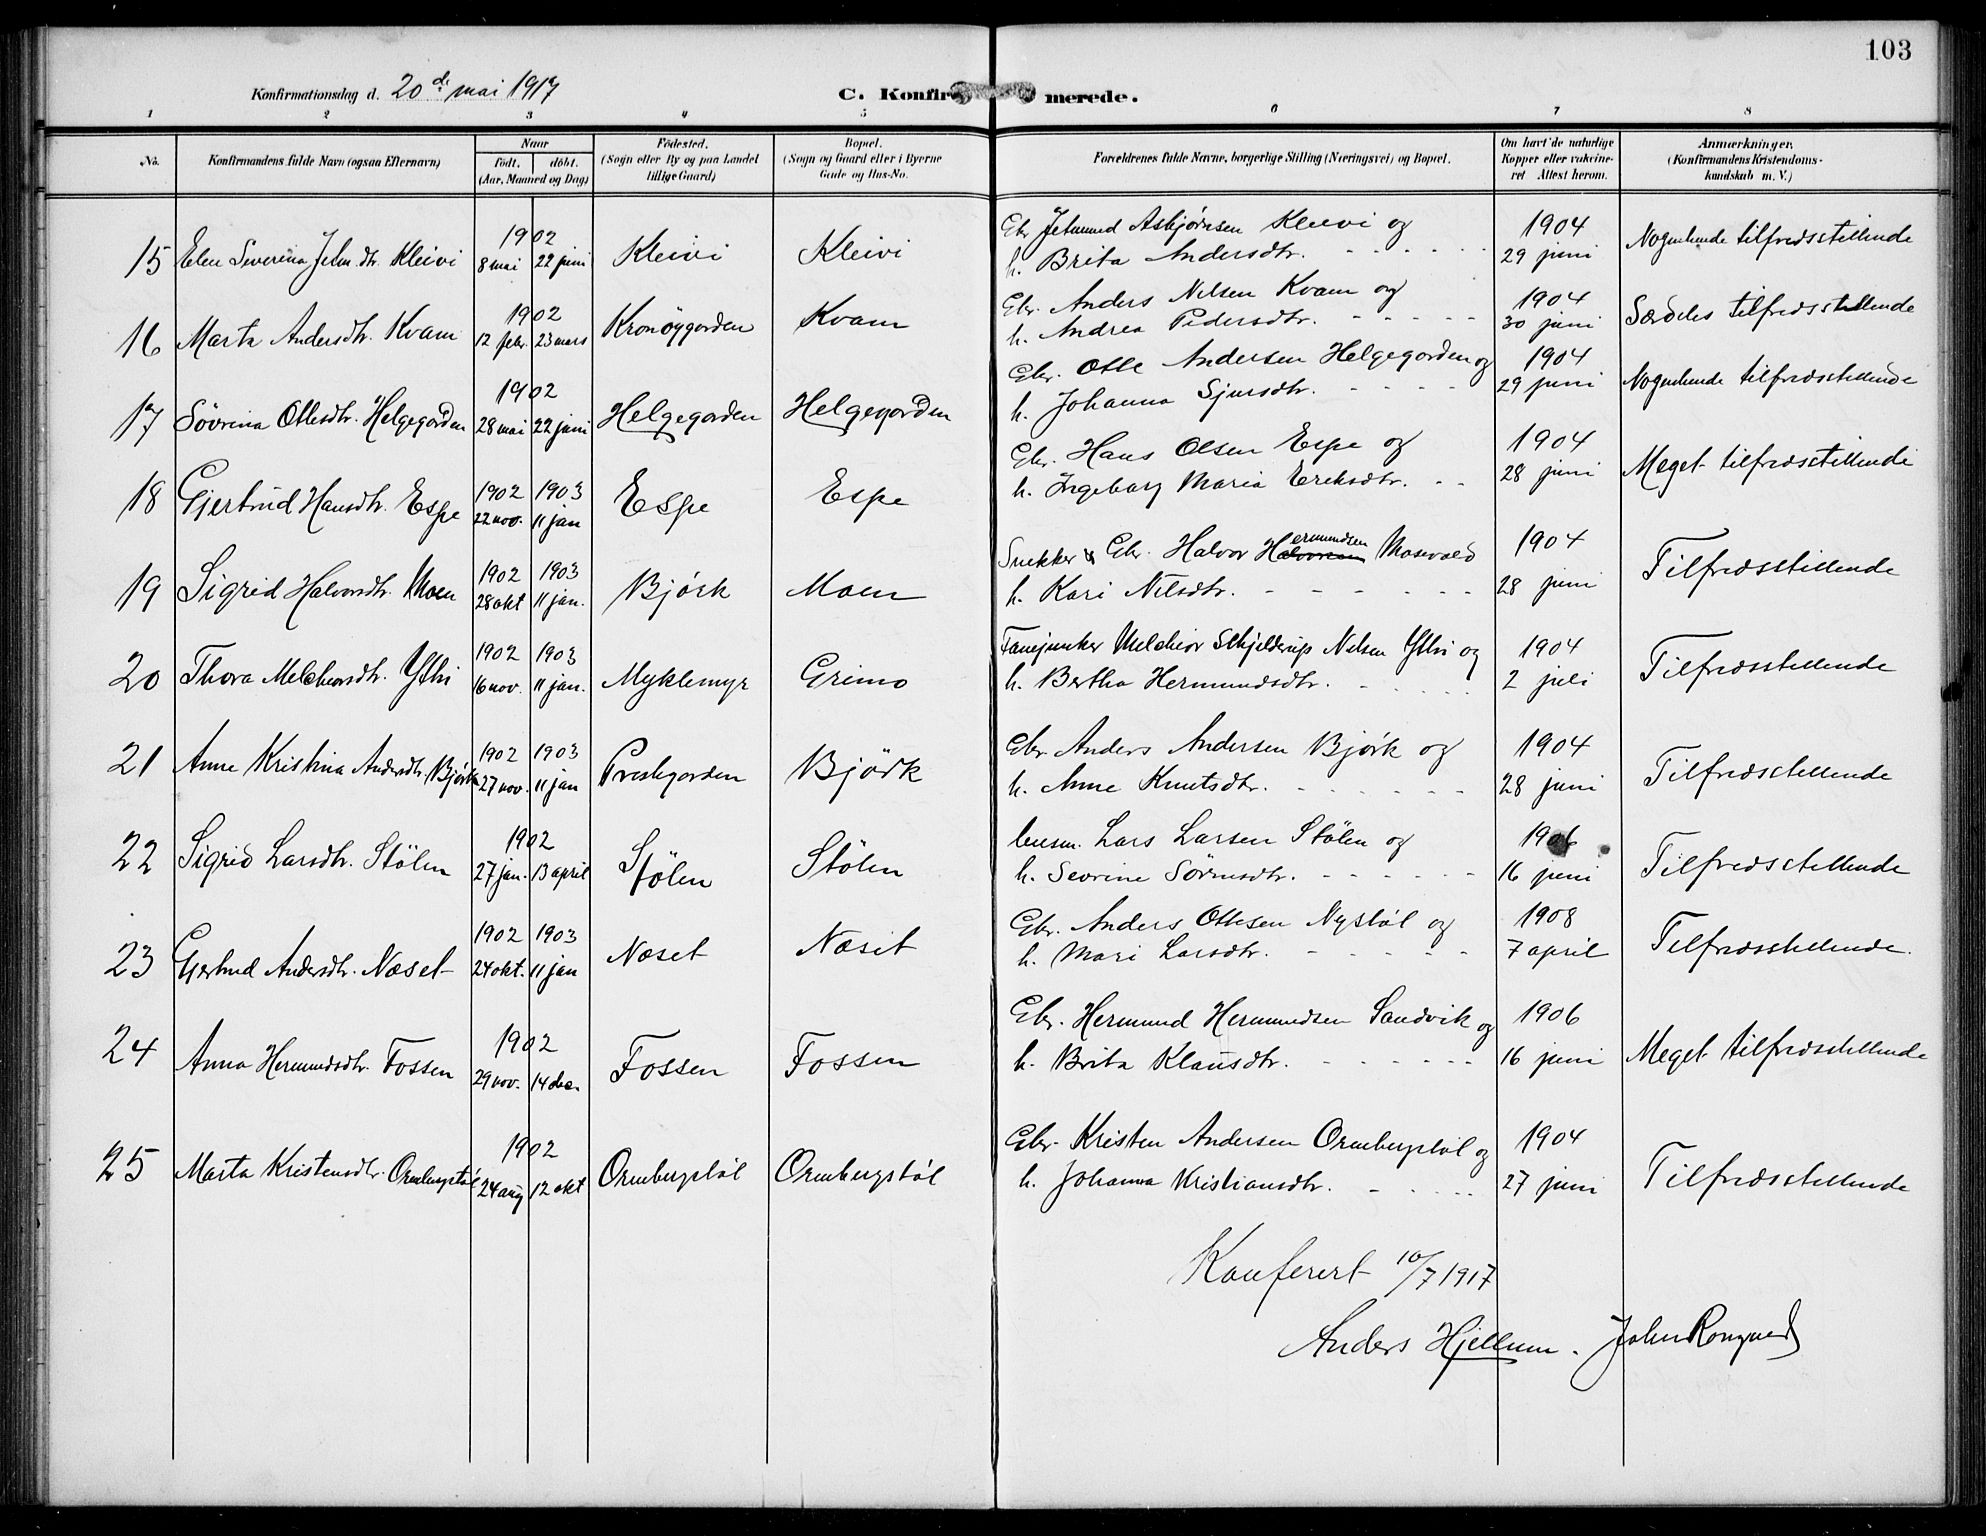 103
Konfirmationsdag d. 20de mai 1917 C. Konfirmerede.
1 2 3 4 5 6 7 8
No. Konfirmandens fulde Navn (ogsaa Efternavn) Naar födt. döbt. (Aar, Maaned og Dag) Födested. (Sogn eller By og paa Landet tillige Gaard) Bopæl. (Sogn og Gaard eller i Byerne Gade og Hus-No. Forældrenes fulde Navne, borgerlige Stilling (Næringsvei) og Bopæl. Om havt de naturlige Kopper eller vakcineret Attest herom. Anmærkninger. (Konfirmandens Kristendomskundskab m. V.)
15 Elen Severina Jetm.dtr. Kleivi 1902 8 mai 22 juni Kleivi Kleivi Gbr. Jetmund Asbjørnsen Kleivi og 1904 Nogenlunde tilfredsstillende
h. Brita Andersdtr. 29 juni
16 Marta Andersdtr. Kvam 1902 12 febr. 23 mars Kronöygorden Kvam Gbr. Anders Nilsen Kvam og 1904 Særdeles tilfredsstillende
h. Andrea Pedersdtr. 30 juni
17 Sövrina Ottesdtr. Helgegorden 1902 28 mai 22 juni Helgegorden Helgegorden Gbr. Otte Andersen Helgegorden og 1904 Nogenlunde tilfredsstillende
h. Johanna Sjursdtr. 29 juni
18 Gjertrud Hansdtr. Espe 1902 22 nov. 1903 11 jan Espe Espe Gbr. Hans Olsen Espe og 1904 Meget tilfredsstillende
h. Ingeborg Maria Eriksdtr. 28 juni
19 Sigrid Halvorsdtr. Moen 1902 28 okt 1903 11 jan. Björk Moen Snekker & Gbr. Halvor Hermundsen Mosevold 1904 Tilfredsstillende
h. Kari Nilsdtr. 28 juni
20 Thora Melchiorsdtr. Ytri 1902 16 nov. 1903 11 jan. Myklemyr Grimo Fanejunker Melchior Schjelderup Nilsen Ytri og 1904 Tilfredsstillende
h. Bertha Hermundsdtr. 2 juli
21 Anne Kristina Andersdtr. Björk 1902 27 nov. 1903 11 jan Prestegorden Björk Gbr. Anders Andersen Björk og 1904 Tilfredsstillende
h. Anne Knutsdtr. 28 juni
22 Sigrid Larsdtr. Stölen 1902 27 jan. 13 april Stölen Stölen Lars Larsen Stölen og 1906 Tilfredsstillende
h. Sevrine Sörensdtr. 16 juni
23 Gertrud Andersdtr. Næset 1902 24 okt. 1903 11 jan Næset Næset Gbr. Anders Ottesen Nystöl og 1908 Tilfredsstillende.
h. Mari Larsdtr. 7 april
24 Anna Hermundsdtr. Fossen 1902 29 nov. 14 dec. Fossen Fossen Gbr. Hermund Hermundsen Sandvik og 1906 Meget tilfredsstillende
h. Brita Klausdtr. 16 juni
25 Marta Kristensdtr. Ormbergstöl 1902 24 aug 12 okt Ormbergstöl Ormbergstöl Gbr. Kristen Andersen Ormbergstöl og 1904 Tilfredsstillende
h. Johanna Kristiansdtr. 27 juni
Konferert 10/7 1917
Anders Hjellum. John